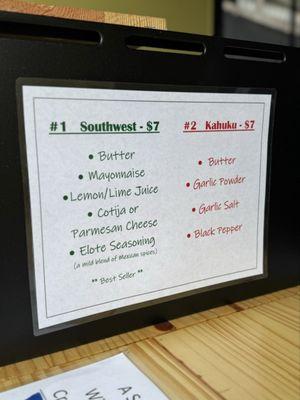 #1 Southwest - $7
• Butter
• Mayonnaise
• Lemon/Lime Juice
• Cotija or
Parmesan Cheese
• Elote Seasoning
(a mild blend of Mexican spices)
** Best Seller **
#2 Kahuku - $7
• Butter
• Garlic Powder
• Garlic Salt
• Black Pepper